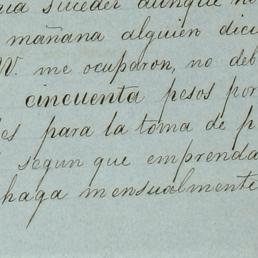 suceder aunque no
mañana alguien dici
W. me ocuparon, no deb
cincuenta pesos por
es para la toma de p
segun que emprenda
haga mensualmente